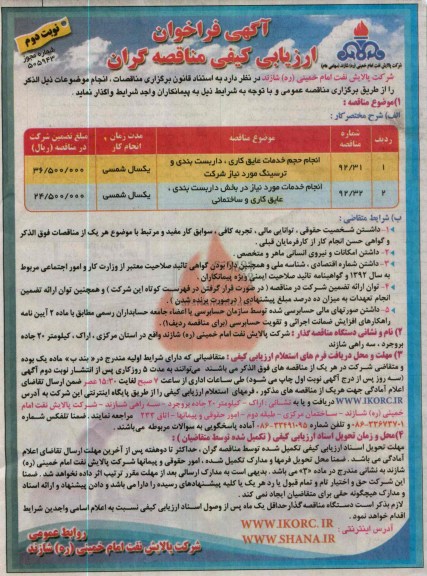 نوبت دوم
شماره مجوز
۵۰۵۹۴۳
آگهی فراخوان
ارزیابی کیفی مناقصه گران
شرکت پالایش نفت امام خمینی (ره) شازند
شرکت پالایش نفت امام خمینی (ره) شازند در نظر دارد به استناد قانون برگزاری مناقصات ، انجام موضوعات ذیل الذکر
را از طریق برگزاری مناقصه عمومی و با توجه به شرایط ذیل به پیمانکاران واجد شرایط واگذار نماید .
۱)موضوع مناقصه :
الف) شرح مختصر کار :
ردیف
شماره مناقصه
موضوع مناقصه
مدت زمان انجام کار
مبلغ تضمین شرکت در مناقصه (ریال)
۱
۹۲/۳۱
انجام حجم خدمات عایق کاری ، داربست بندی و
ترسینگ مورد نیاز شرکت
یکسال شمسی
۳۶/۵۰۰/۰۰۰
۲
۹۲/۳۲
انجام خدمات مورد نیاز در بخش داربست بندی ،
عایق کاری و ساختمانی
یکسال شمسی
۲۴/۵۰۰/۰۰۰
ب) شرایط متقاضی :
۱- داشتن شخصیت حقوقی ، توانایی مالی ، تجربه کافی ، سوابق کار مفید و مرتبط با موضوع هر یک از مناقصات فوق الذکر
و گواهی حسن انجام کار از کارفرمایان قبلی .
۲- داشتن امکانات و نیروی انسانی ماهر و متخصص
۳- داشتن شماره اقتصادی ، شناسه ملی و همچنین دارا بودن گواهی تائید صلاحیت معتبر از وزارت کار و امور اجتماعی مربوط
به سال ۱۳۹۲ و گواهینامه تائید صلاحیت ایمنی ویژه پیمانکاران .
۴- توان ارائه تضمین شرکت در مناقصه ( در صورت قرار گرفتن در فهرست کوتاه این شرکت ) و همچنین توان ارائه تضمین
انجام تعهدات به میزان ده درصد مبلغ پیشنهادی ( درصورت برنده شدن ) .
۵- داشتن صورتهای مالی حسابرسی شده توسط سازمان حسابرسی یا اعضاء جامعه حسابداران رسمی مطابق با ماده ۲ آیین نامه
راهکارهای افزایش ضمانت اجرائی و تقویت حسابرسی (برای مناقصه ردیف۱) .
۲) نام و نشانی دستگاه مناقصه گذار : شرکت پالایش نفت امام خمینی (ره) شازند واقع در استان مرکزی ، اراک ، کیلومتر ۲۰ جاده
بروجرد ، سه راهی شازند
۳) مهلت و محل دریافت فرم های استعلام ارزیابی کیفی : متقاضیانی که دارای شرایط اولیه مندرج در «بند ب» ماده یک بوده
و متقاضی شرکت در هر یک از مناقصه های فوق الذکر می باشند می‌توانند به مدت ۵ روزکاری پس از انتشار نوبت دوم آگهی
(سه روز پس از درج آگهی نوبت اول چاپ می شود) طی ساعات اداری از ساعت ۷ صبح لغایت ۱۵:۳۰ عصر ضمن ارسال تقاضای
اعلام آمادگی جهت هر یک از مناقصه های مذکور ، فرمهای استعلام ارزیابی کیفی را از طریق پایگاه اینترنتی این شرکت به آدرس
WWW.IKORC.IR دریافت و یا به نشانی : اراک - کیلومتر ۲۰ جاده بروجرد - سه راهی شازند - شرکت پالایش نفت امام
خمینی (ره) شازند - ساختمان مرکزی - طبقه دوم - امور حقوقی و پیمانها - اتاق ۲۳۲ مراجعه نمایند . ضمناً تلفکس شماره
و تلفن شماره آماده پاسخگویی به سوالات مربوطه می‌باشند .
۴)محل و زمان تحویل اسناد ارزیابی کیفی ( تکمیل شده توسط متقاضیان ) :
مهلت تحویل اسناد ارزیابی کیفی تکمیل شده توسط مناقصه گران ، حداکثر تا دوهفته پس از آخرین مهلت ارسال تقاضای اعلام
آمادگی می باشد . ضمناً محل تحویل فرمها و مدارک تکمیل شده ، امور حقوقی و پیمانها شرکت پالایش نفت امام خمینی (ره)
شازند به نشانی مندرج در ماده «۳» می باشد . بدیهی است به مدارک ارسالی بعد از مهلت مقرر ترتیب اثر داده نخواهد شد . ضمناً
این شرکت حق و اختیار تام و تمام قبول یا رد هر یک یا کلیه پیشنهادهای رسیده را دارا می باشد و دادن پیشنهاد و ارائه اسناد
و مدارک هیچگونه حقی برای متقاضیان ایجاد نمی کند .
لازم بذکر است دستگاه مناقصه گذار حداقل یک ماه پس از وصول اسناد ارزیابی کیفی نسبت به اعلام اسامی واجدین شرایط
اقدام خواهد نمود .
آدرس اینترنتی :
WWW.IKORC.IR
WWW.SHANA.IR
روابط عمومی
شرکت پالایش نفت امام خمینی (ره) شازند